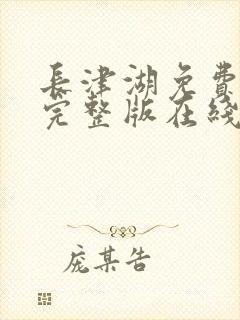 長津湖免費
完整版在綫
庞某告